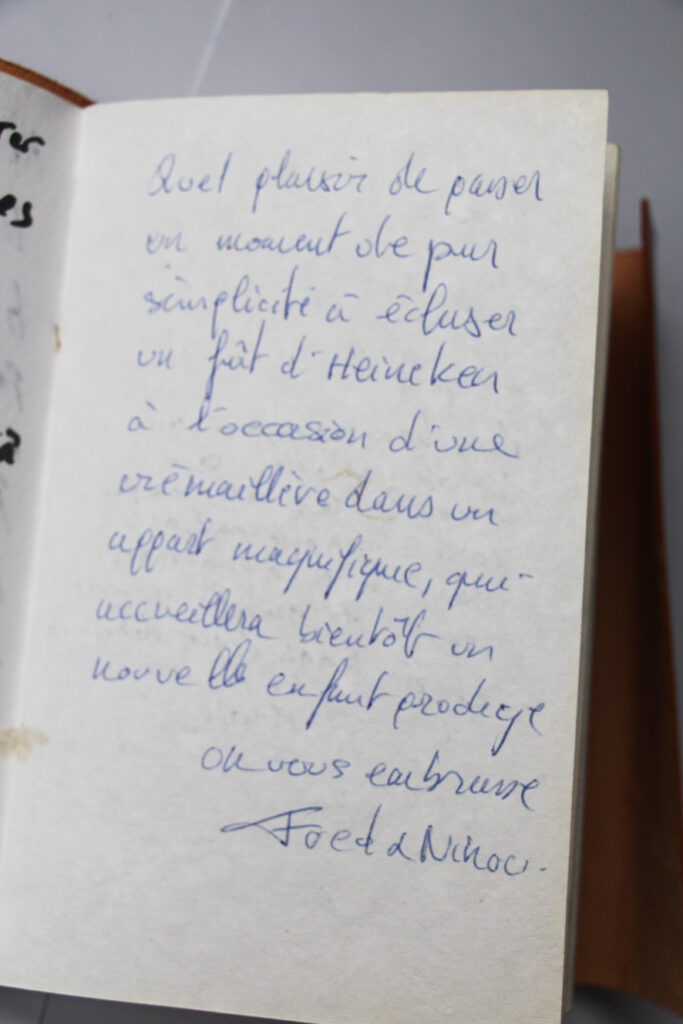 ter
es
Quel plaisir de passer
un moment de pur
simplicité à écluser
un fût d'Heineken
à l'occasion d'une
crémaillère dans un
appart magnifique, qui
accueillera bientôt un
nouvelle enfant prodige
on vous embrasse
&